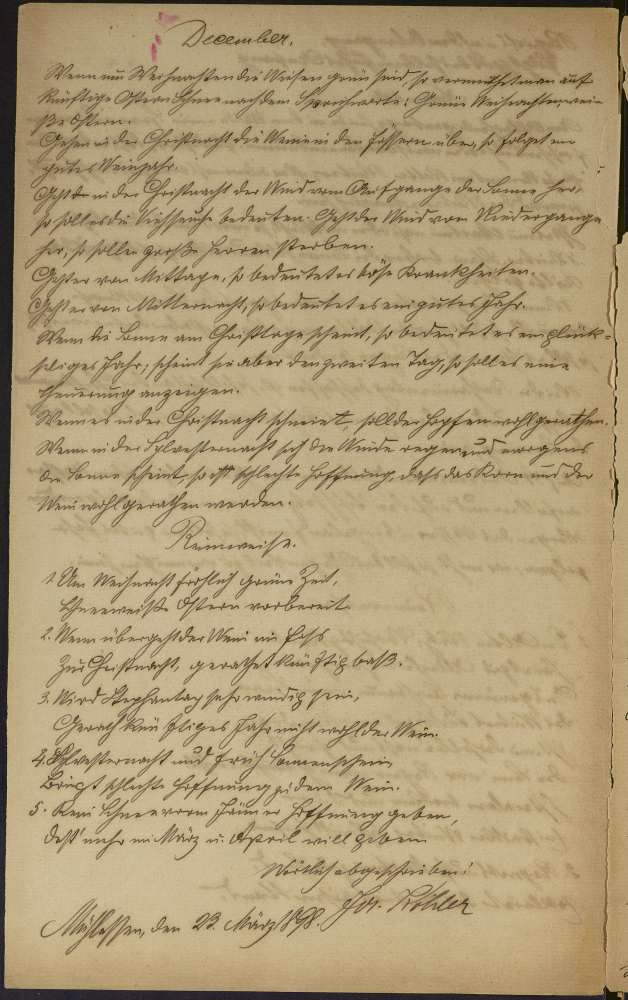 December.
Wenn um Weihnachten die Weiden grün seid, so vermuthet man auf
künftige Ostern Schnee nach dem Sprichworte: Grüne Weihnachten wei-
ße Ostern.
Gehen in der Christnacht die Weine in den Fässern über, so folget ein
gutes Weinjahr.
Geht in der Christnacht der Wind vom Aufgange der Sonne her,
so soll es die Viehseuche bedeuten. Geht der Wind vom Niedergange
her, so sollen große Herren sterben.
Geht er von Mittage, so bedeutet es böse Krankheiten.
Geht er von Mitternacht, so bedeutet es ein gutes Jahr.
Wenn die Sonne am Christtage scheint, so bedeutet es ein glück-
seliges Jahr; scheint sie aber den zweiten Tag, so soll es eine
Theuerung anzeigen.
Wenn es in der Christnacht schneiet, soll der Hopfen wohl gerathen.
Wenn in der Sylvesternacht sich die Winde regen und morgens
die Sonne scheint, so ist schlechte Hoffnung, daß das Korn und der
Wein wohl gerathen werden.
Reimweise.
1. Um Weihnacht fröhlich grüne Zeit,
Schneeweiße Ostern vorbereit.
2. Wenn übergeht der Wein im Faß
Zur Christnacht, gerathet künftig baß.
3. Wird Stephantag sehr windig sein,
Gerath künftiges Jahr nicht wohl der Wein.
4. Sylvesternacht und früh Sonnenschein
Bringt schlechte Hoffnung zu dem Wein.
5. Kein Schnee vorm Jänner Hoffnung geben,
Deßt mehr im März u. April will geben
Wörtlich abgeschrieben:
Jos. Köhler
Mühlessen, den 23. März 1898.